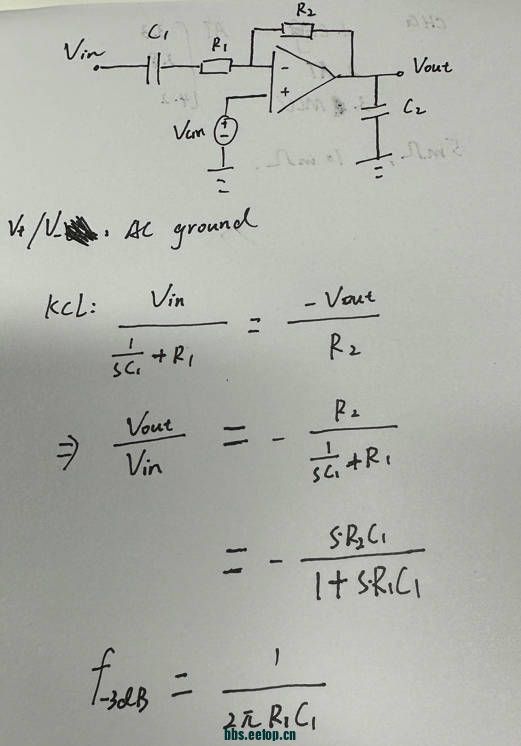 C₁
R₁
R₂
Vin
Vout
C₂
Vcm
V+/V-, AC ground
KCL: Vin / (1/SC₁ + R₁) = -Vout / R₂
⇒ Vout / Vin = - R₂ / (1/SC₁ + R₁)
= - S·R₂C₁ / (1 + S·R₁C₁)
f-3dB = 1 / (2π R₁C₁)
bbs.eetop.cn